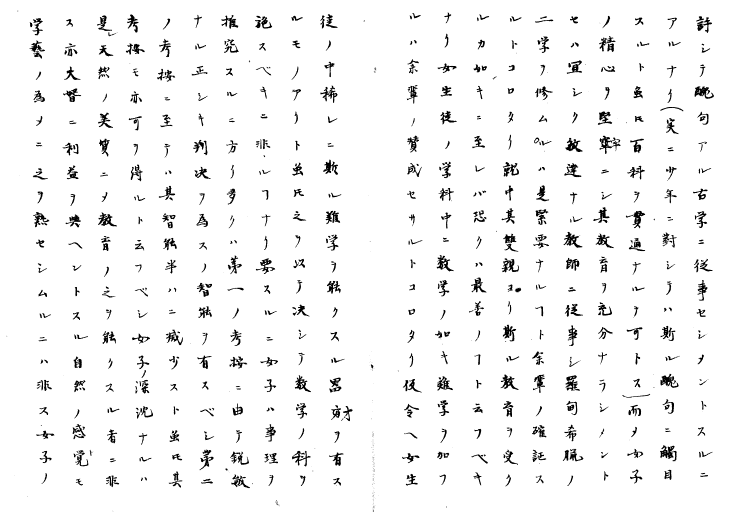 許シテ醜句アル古学ニ従事セシメントスルニ
アルナリ(実ニ少年ニ對シテハ斯ル醜句ニ觸目
スルト虽𪜈百科ヲ貫通ナルヲ可トス)而メ女子
ノ精心ヲ堅牢ニシ其教育ヲ充分ナラシメント
セハ宜シク敎達ナル教師ニ従事シ羅甸希臘ノ
二学ヲ修ムルハ是緊要ナルヿト余輩ノ確証ス
ルトコロタリ就中其雙親ヨリ斯ル教育ヲ受ク
ルカ如キニ至レバ恐クハ最善ノヿト云フベキ
ナリ女生徒ノ学科中ニ数学ノ如キ難学ヲ加フ
ルハ余輩ノ賛成セサルトコロタリ仮令ヘ女生
徒ノ中稀レニ斯ル難学ヲ能クスル器才ヲ有ス
ルモノアリト虽𪜈之ヲ以テ决シテ数学ノ科ヲ
施スベキニ非ルヿナリ要スルニ女子ハ事理ヲ
推究スルニ方リ多クハ第一ノ考按ニ由テ鋭敏
ナル正シキ判决ヲ為スノ智能ヲ有スベシ第二
ノ考按ニ至テハ其智能半ハニ减少スト虽𪜈其
考按モ亦可ヲ得ルト云フベシ女子ノ深沈ナルハ
是レ天然ノ美質ニメ教育ノ之ヲ能クスル者ニ非
ス亦大督ニ利益ヲ與ヘントスル自然ノ感覚モ
学藝ノ為メニ之ヲ熟セシムルニハ非ス女子ノ